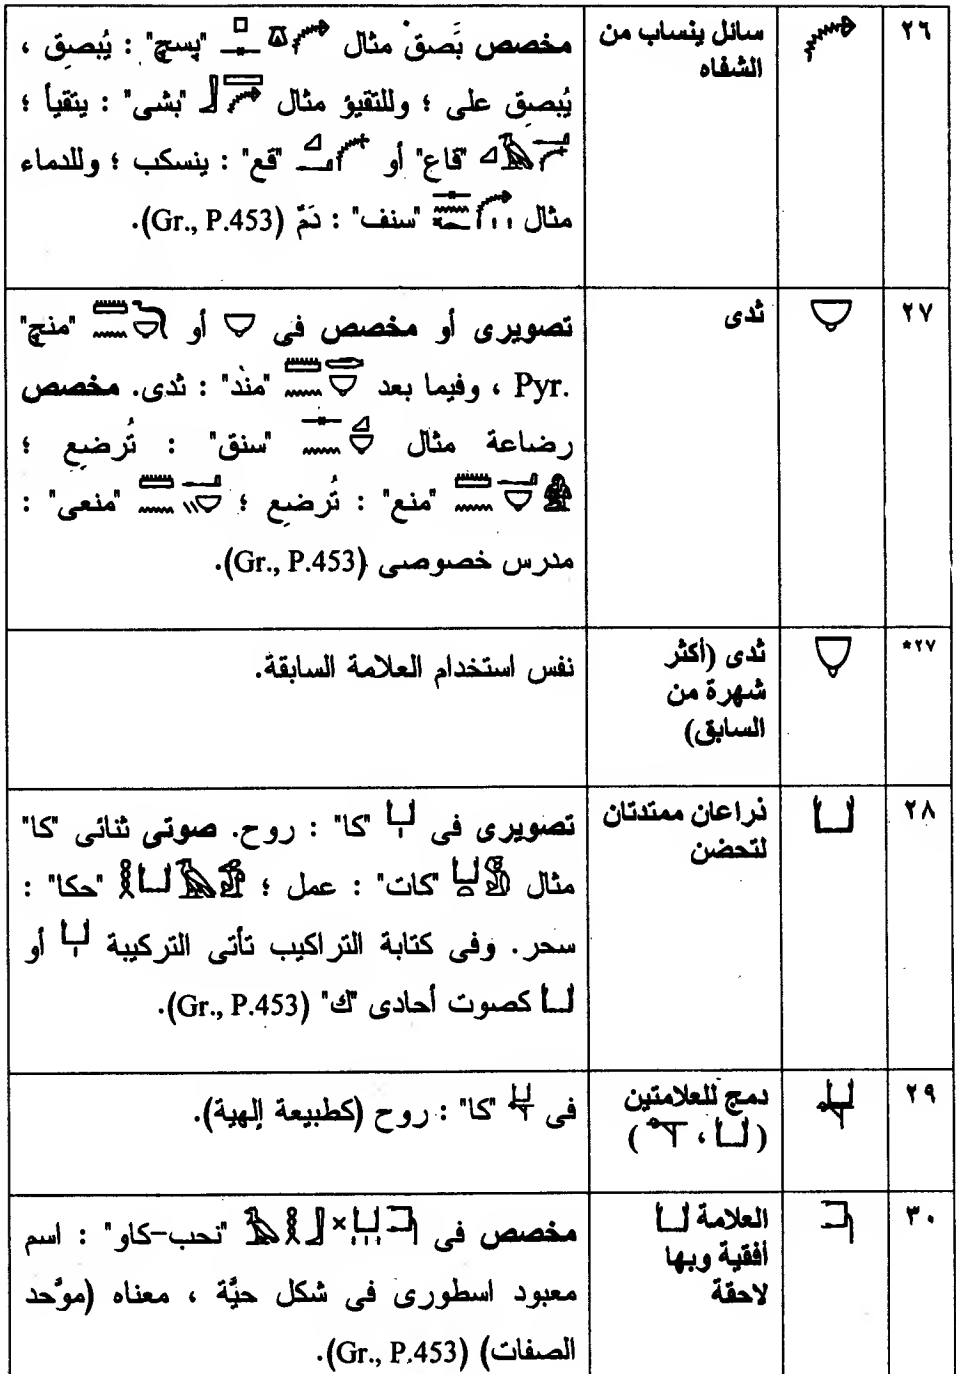 ٢٦
سائل ينساب من
الشفاه
مخصص بَصقْ مثال "پسچ" : يُبصق ،
يُبصق على ؛ وللتقيؤ مثال "بشى" : يتقيأ ؛
"قاع" أو "قع" : ينسكب ؛ وللدماء
مثال "سنف" : دَمٌ (Gr., P.453).
٢٧
ثدى
تصويرى أو مخصص فى أو "منچ"
Pyr. ، وفيما بعد "مند" : ثدى. مخصص
رضاعة مثال "سنق" : تُرضع ؛
"منع" : تُرضع ؛ "منعى" :
مدرس خصوصى (Gr., P.453).
*٢٧
ثدى (أكثر
شهرة من
السابق)
نفس استخدام العلامة السابقة.
٢٨
ذراعان ممتدتان
لتحضن
تصويرى فى "كا" : روح. صوتى ثنائى "كا"
مثال "كات" : عمل ؛ "حكا" :
سحر. وفى كتابة التراكيب تأتى التركيبة أو
كصوت أحادى "ك" (Gr., P.453).
٢٩
دمج للعلامتين
( ، )
فى "كا" : روح (كطبيعة إلهية).
٣٠
العلامة
أفقية وبها
لاحقة
مخصص فى "نحب-كاو" : اسم
معبود اسطورى فى شكل حيَّة ، معناه (موَّحد
الصفات) (Gr., P.453).